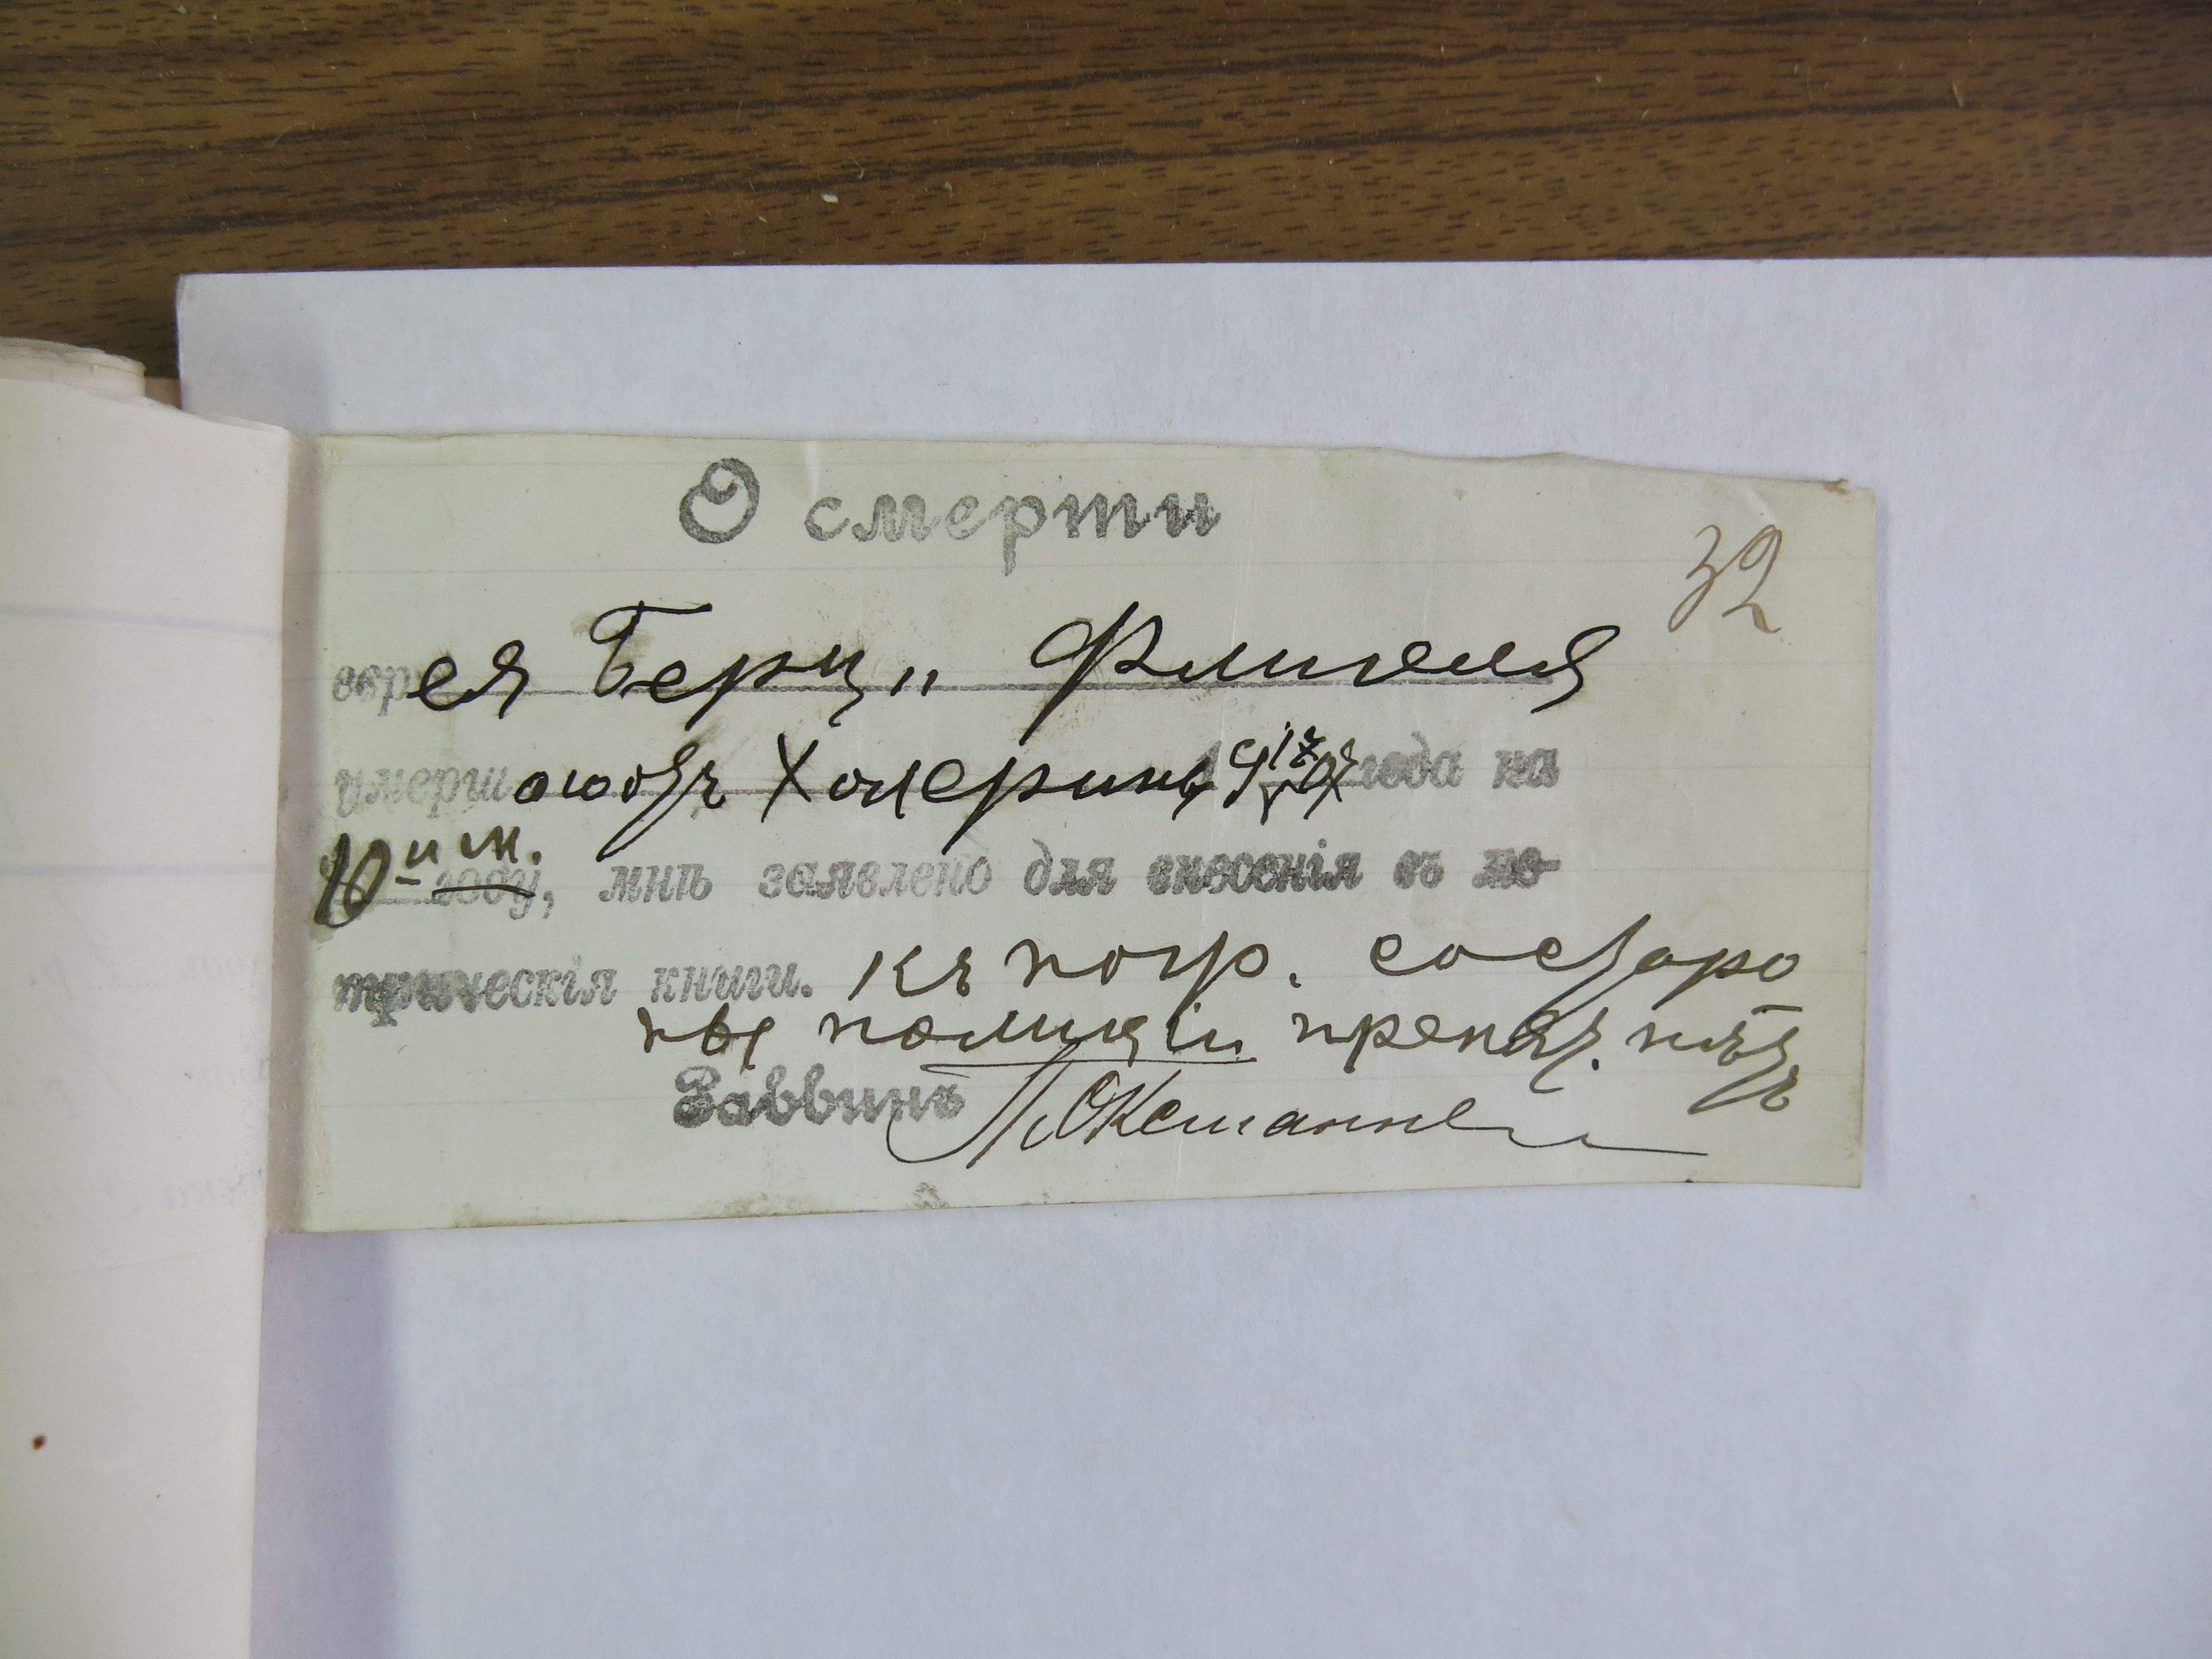 О смерти
32
еврея Берц" Флигеля
умершаго отъ Холерины года на
10 и м. году, мнѣ заявлено для внесенія въ ме-
трическія книги. Къ погр. со сторо
ны полиціи препят. нѣтъ
Раввинъ